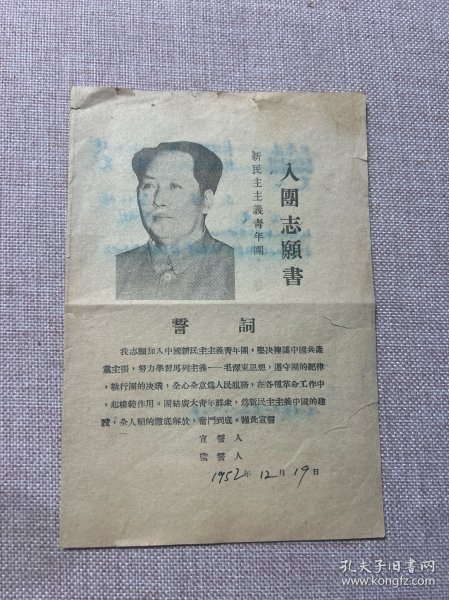 入團志願書
新民主主義青年團
誓詞
我志願加入中國新民主主義青年團，堅决擁護中國共產
黨主張，努力學習馬列主義——毛澤東思想，遵守團的紀律
，執行團的决議，全心全意爲人民服務，在各種革命工作中
，起模範作用。團結廣大青年群衆，爲新民主主義中國的建
設，全人類的澈底解放，奮鬥到底。謹此宣誓
宣誓人
監誓人
1952年12月19日
孔夫子旧书网
www.kongfz.com